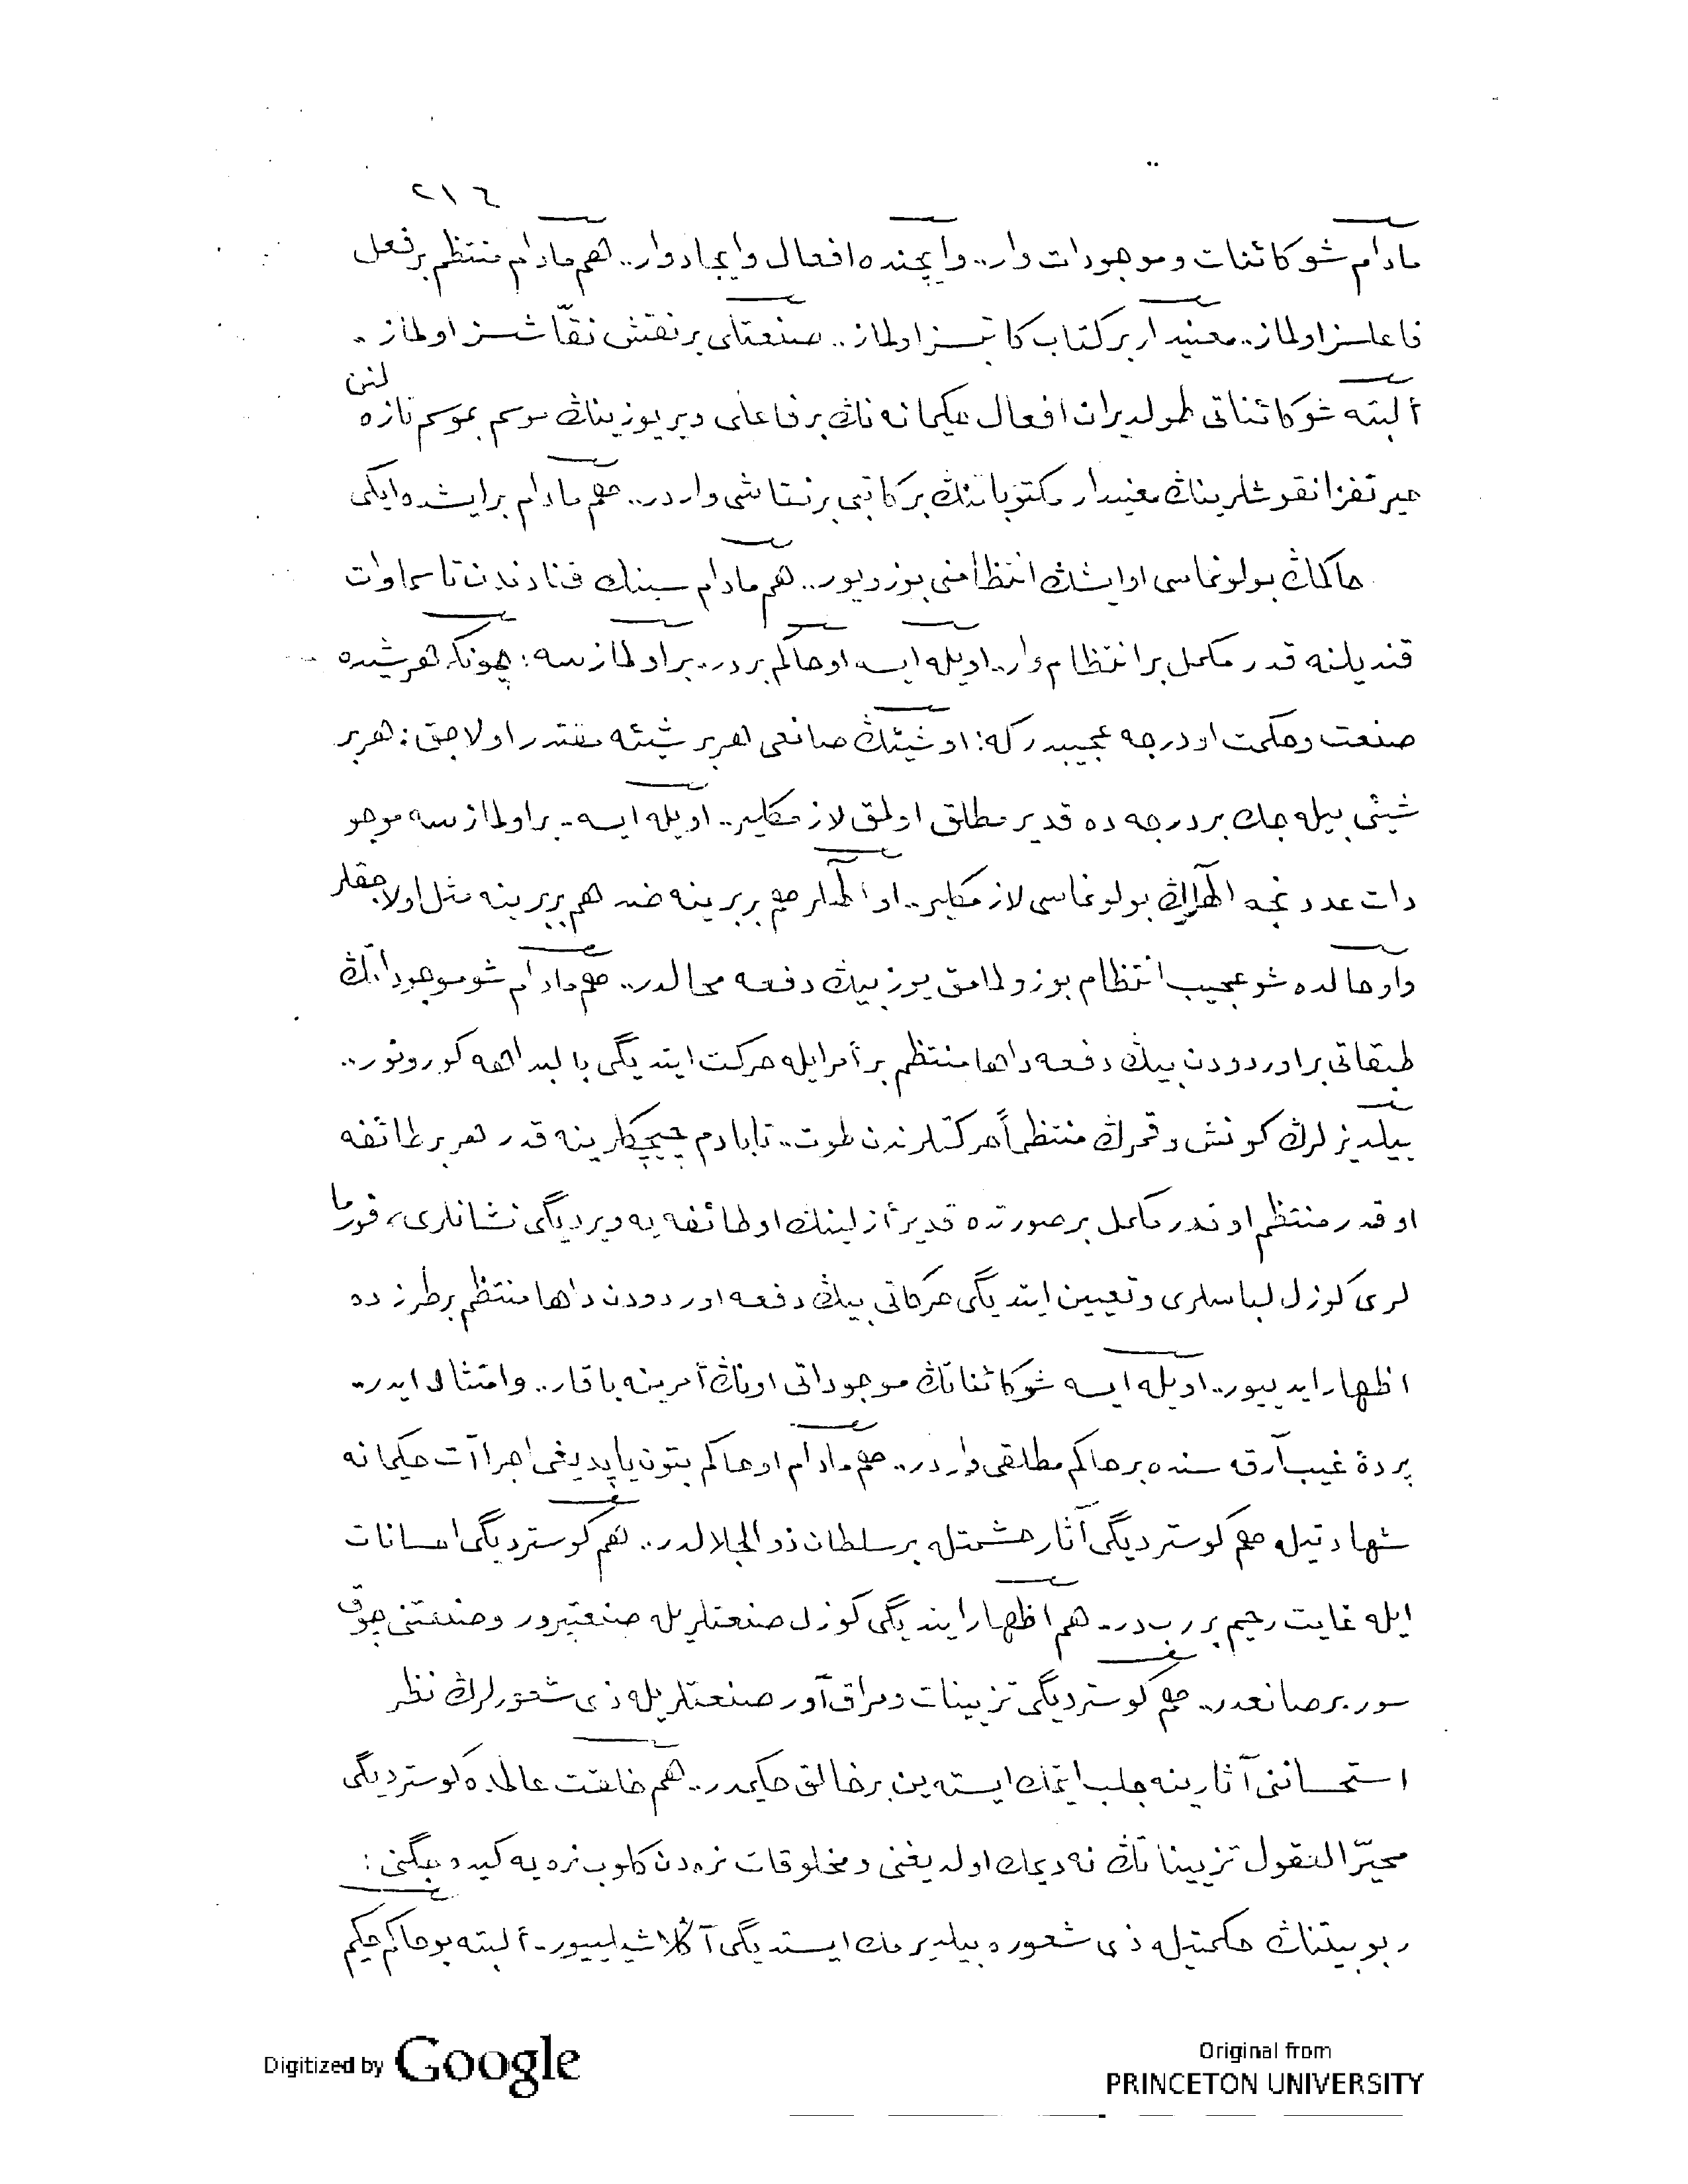 ٢١٦
مادام شو كائنات و موجودات وار.. وايچنده افعال وايجاد وار.. هم مادام منتظم بر فعل
فاعلسز اولماز.. معنيدار بر كتاب كاتبسز اولماز.. صنعتلى بر نقش نقّاشسز اولماز..
ألبته شو كائناتى طولديران افعال حكيمانه نك بر فاعلى و يريوزينك موسم بموسم تازه لنن
حيرتفزا نقوشلرينك معنيدار مكتوباتنك بر كاتبى بر نقاشى واردر.. هم مادام بر ايشده ايكى
حاكمك بولونماسى او ايشك انتظامنى بوزويور.. هم مادام سينك قنادندن تا سماوات
قنديلنه قدر مكمل بر انتظام وار.. اويله ايسه او حاكم بردر.. بر اولمازسه: چونكه هر شيده
صنعت و حكمت او درجه عجيبدر كه: او شيئك صانعى هر بر شيئه مقتدر اولاجق: هر بر
شيئى بيله جك بر درجه ده قدير مطلق اولمق لازمكلير.. اويله ايسه.. بر اولمازسه موجو
دات عددنجه الٰهلرڭ بولونماسى لازمكلير.. او الٰهلر هم بربرينه ضد هم بربرينه مثل اولاجقلر
و او حالده شو عجيب انتظام بوزولمامق يوز بيڭ دفعه محالدر.. هم مادام شو موجوداتڭ
طبقاتى بر اوردودن بيڭ دفعه داها منتظم بر أمر ايله حركت ايتديگى بالبداهه كورونور..
ييلديزلرڭ كونش و قمرڭ منتظماً حركتلرندن طوت.. تا بادم چيچكلرينه قدر هر بر طائفه
او قدر منتظم او قدر مكمل بر صورتده قدير أزلينك او طائفه يه ويرديگى نشانلرى، فورما
لرى كوزل لباسلرى و تعيين ايتديگى حركاتى بيڭ دفعه اوردودن داها منتظم بر طرزده
اظهار ايدييور.. اويله ايسه شو كائناتڭ موجوداتى اونڭ أمرينه باقار.. و امتثال ايدر..
پردۀ غيب آرقه سنده بر حاكم مطلقى واردر.. هم مادام او حاكم بتون ياپديغى اجراآت حكيمانه
شهادتيله هم كوسترديگى آثار حشمتله بر سلطان ذو الجلالدر.. هم كوسترديگى احسانات
ايله غايت رحيم بر ربدر.. هم اظهار ايتديگى كوزل صنعتلريله صنعتپرور و صنعتنى چوق
سور بر صانعدر.. هم كوسترديگى تزيينات و مراق آور صنعتلريله ذى شعورلرڭ نظر
استحساننى آثارينه جلب ايتمك ايسته ين بر خالق حكيمدر.. هم خلقت عالمده كوسترديگى
محيّر العقول تزييناتڭ نه ديمك اولديغنى و مخلوقات نره دن كلوب نره يه كيده جگنى:
ربوبيتنڭ حكمتيله ذى شعوره بيلديرمك ايستديگى آڭلاشيلييور.. ألبته بو حاكم حكيم
Digitized by Google
Original from
PRINCETON UNIVERSITY